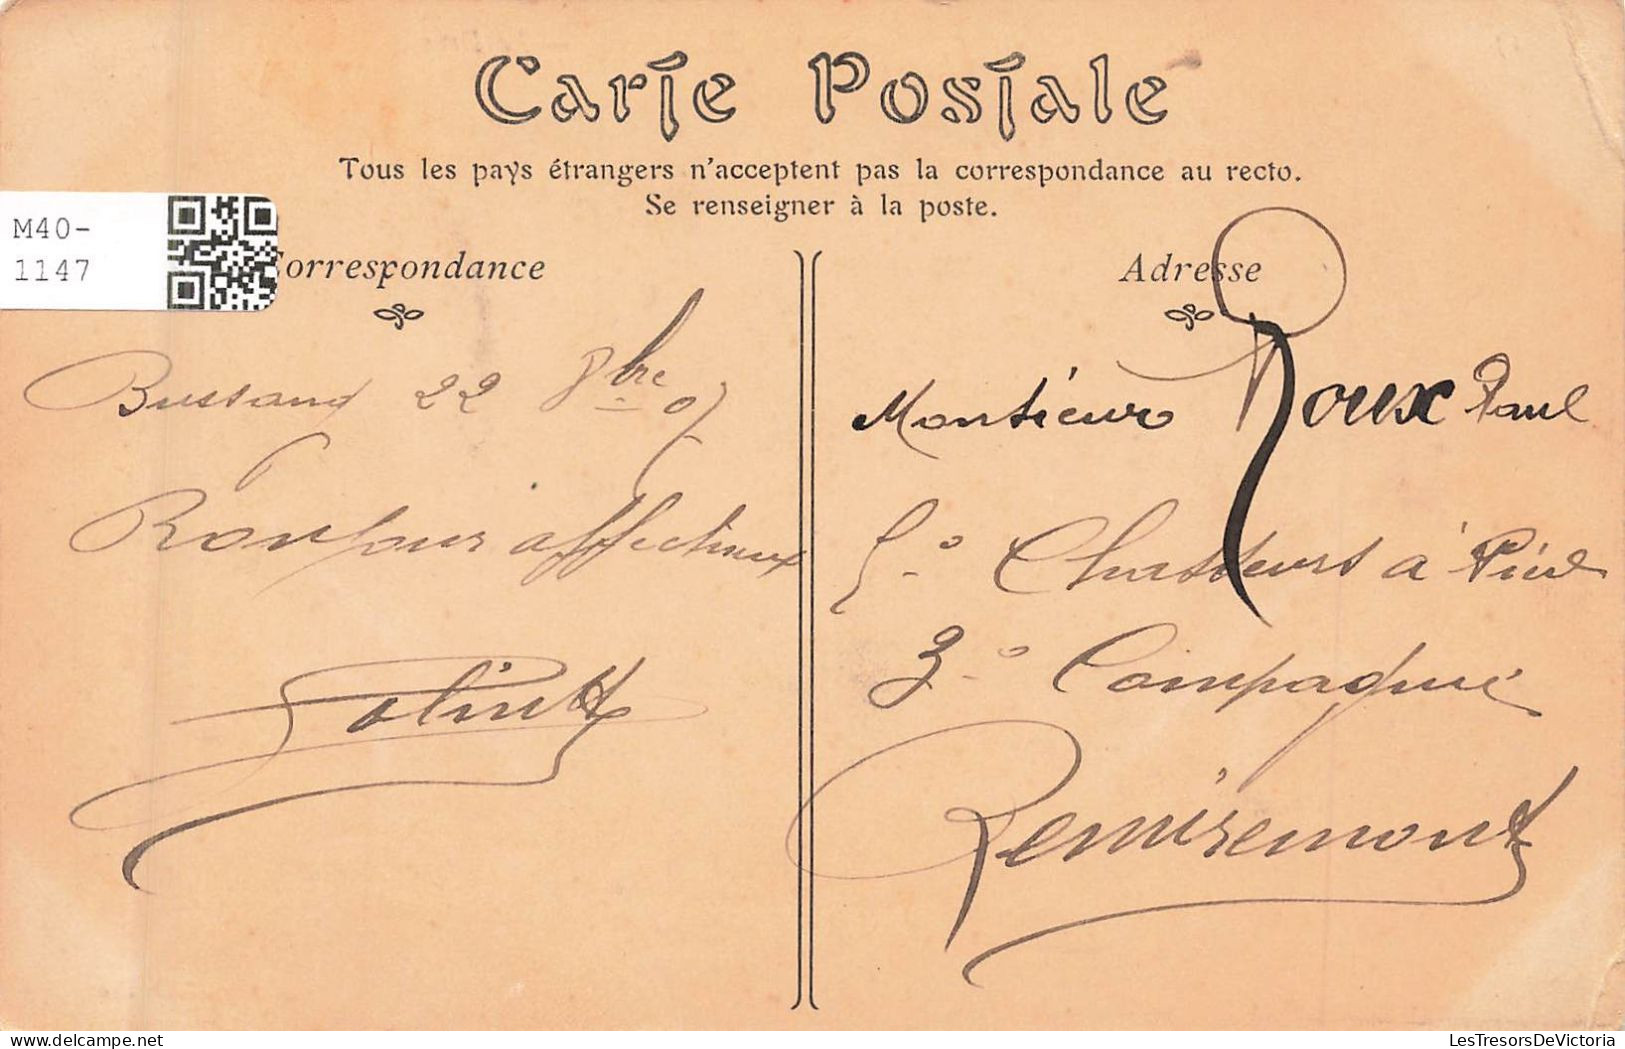 Carte Postale
Tous les pays étrangers n'acceptent pas la correspondance au recto.
Se renseigner à la poste.
M40-
1147
Correspondance
Bussang 22 8bre 07
Bonjour affectueux
Adresse
Monsieur Roux Paul
5e Chasseurs à Pied
3e Compagnie
Remiremont
LesTresorsDeVictoria